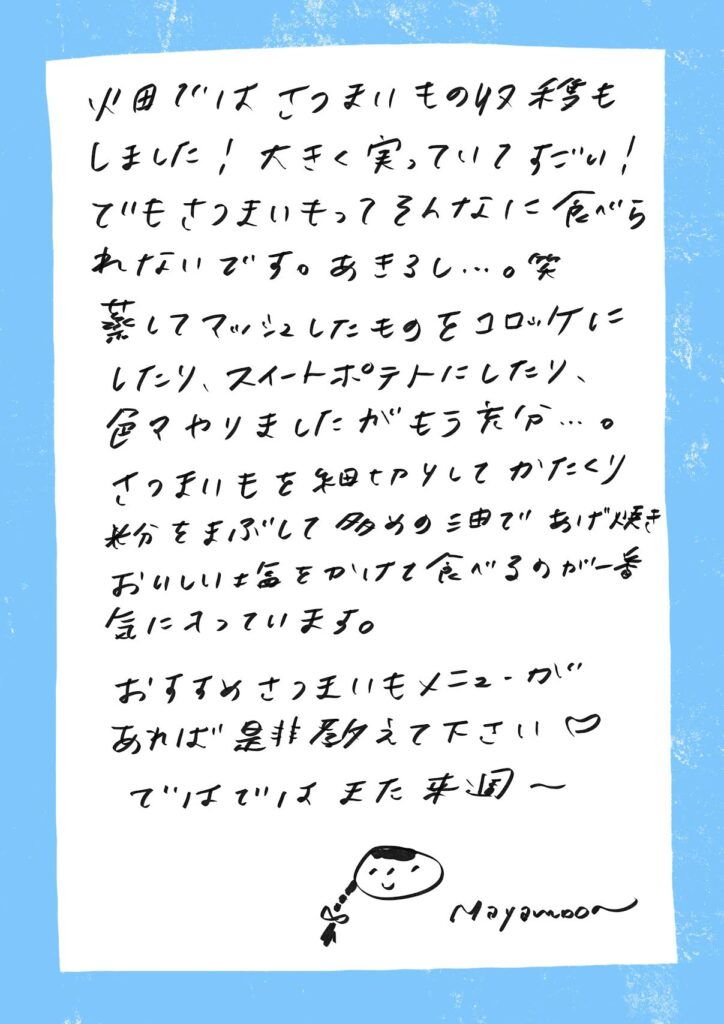 畑ではさつまいもの収穫も
しました！大きく実っていてすごい！
でもさつまいもってそんなに食べら
れないです。あきるし…。笑
蒸してマッシュしたものをコロッケに
したり、スイートポテトにしたり、
色々やりましたがもう充分…。
さつまいもを細切りしてかたくり
粉をまぶして多めの油であげ焼き
おいしい塩をかけて食べるのが一番
気に入っています。
おすすめさつまいもメニューが
あれば是非教えて下さい♡
ではではまた来週〜
Mayamoon